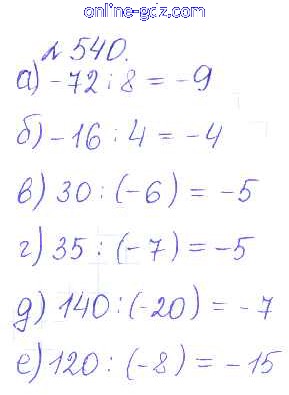 online-gdz.com
№ 540.
а) -72 : 8 = -9
б) -16 : 4 = -4
в) 30 : (-6) = -5
г) 35 : (-7) = -5
д) 140 : (-20) = -7
е) 120 : (-8) = -15